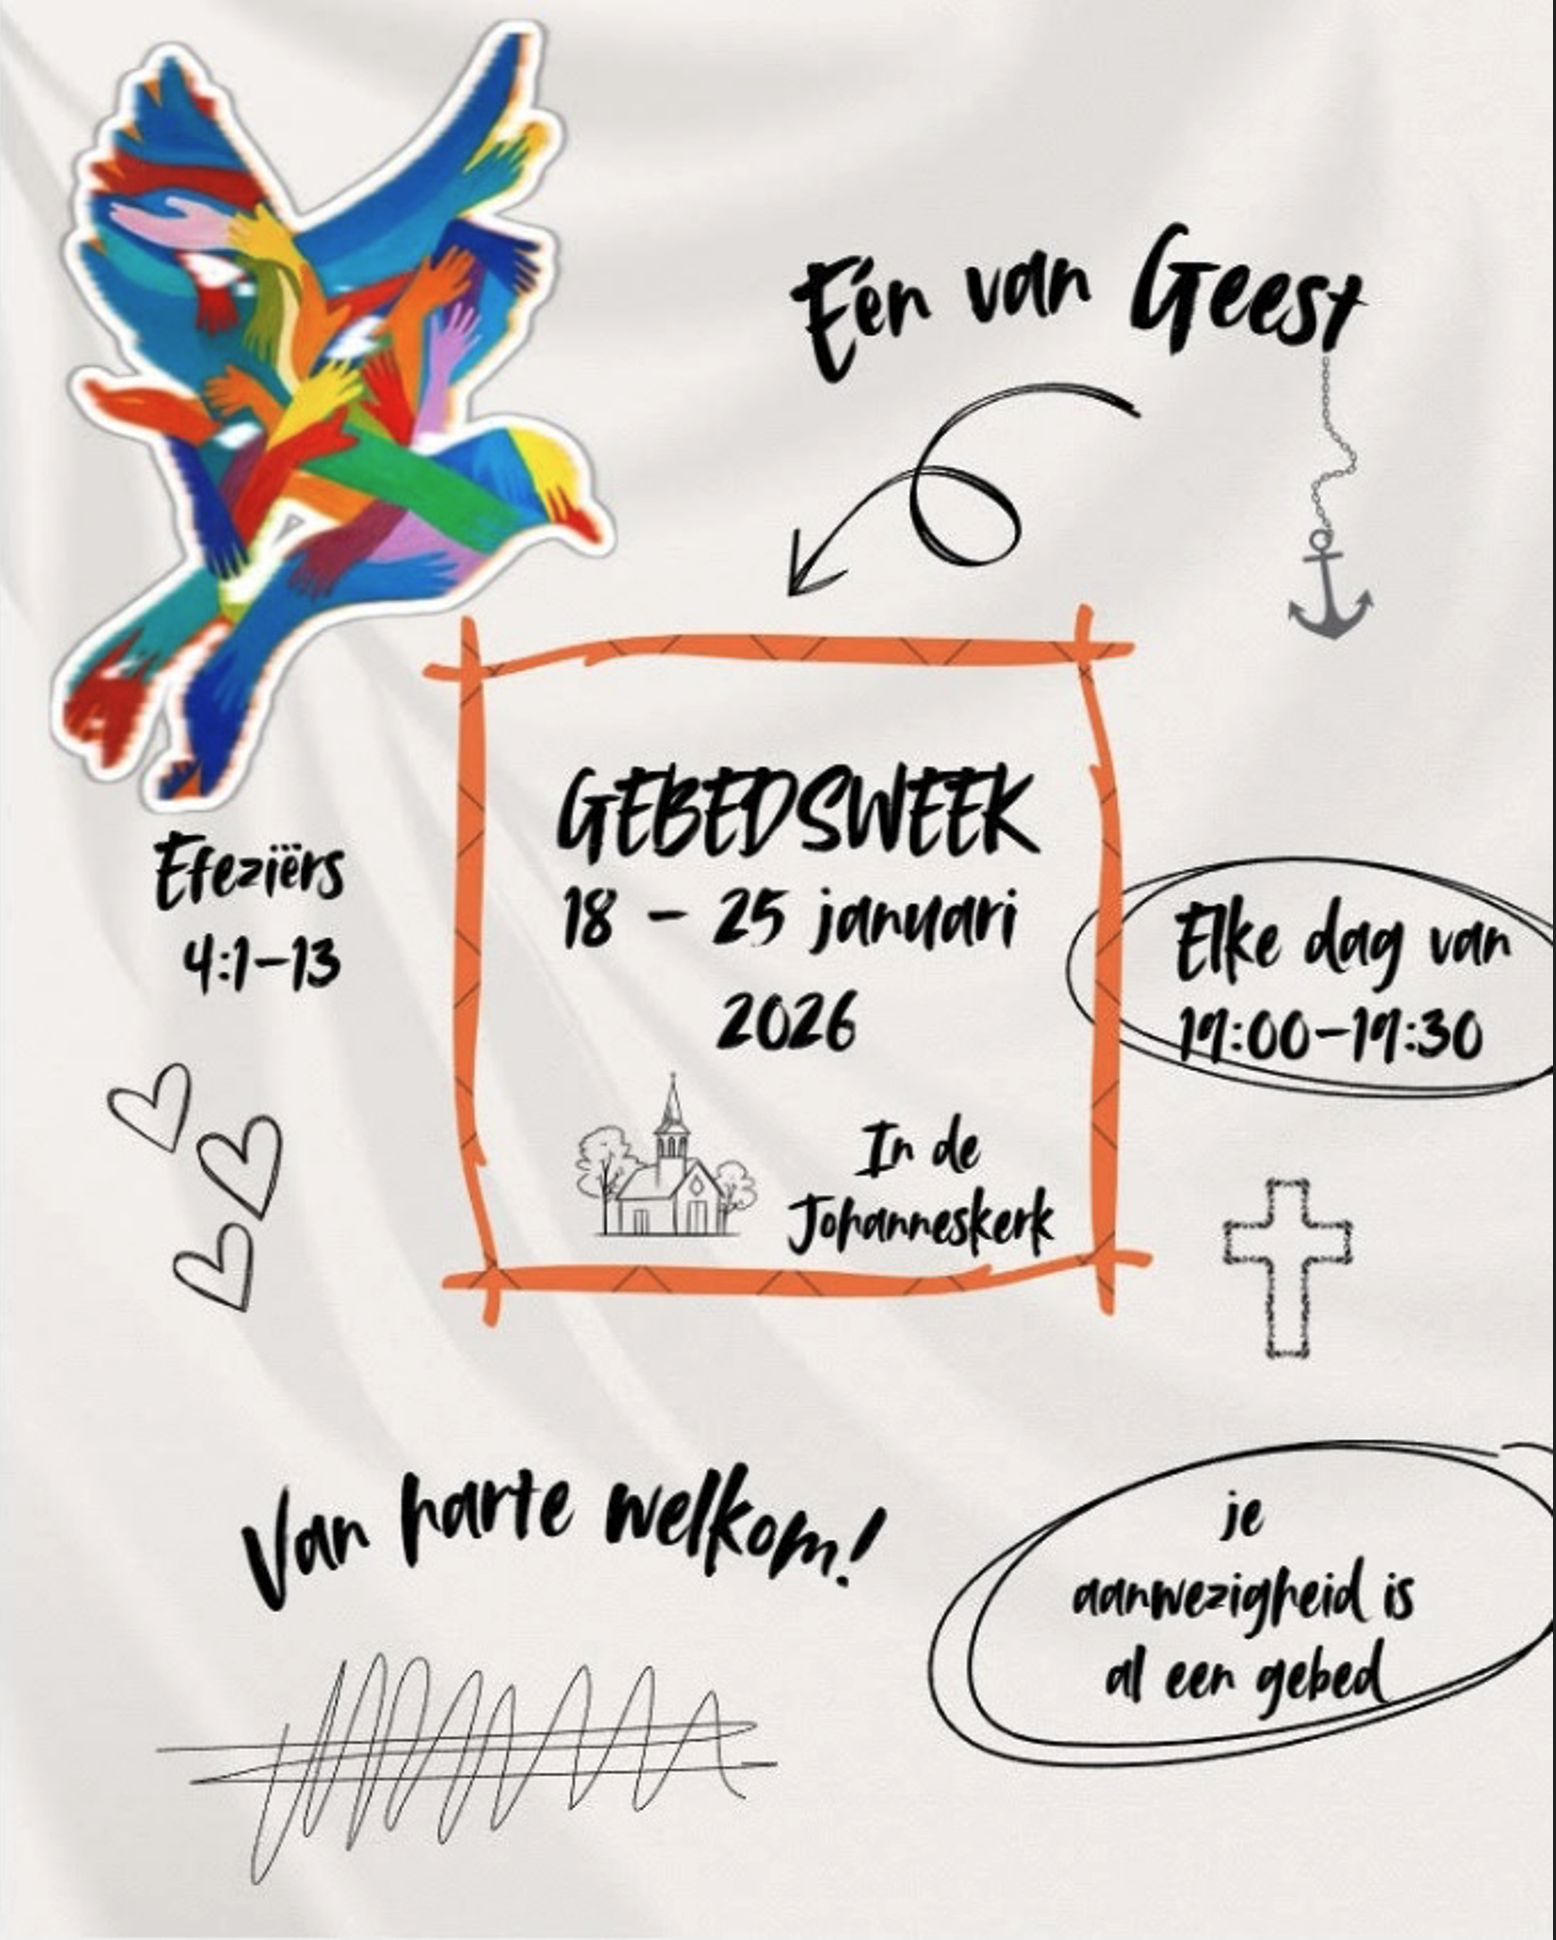 Eén van Geest
GEBEDSWEEK
18 – 25 januari
2026
In de
Johanneskerk
Efeziërs
4:1–13
Elke dag van
19:00–19:30
Van harte welkom!
je
aanwezigheid is
al een gebed